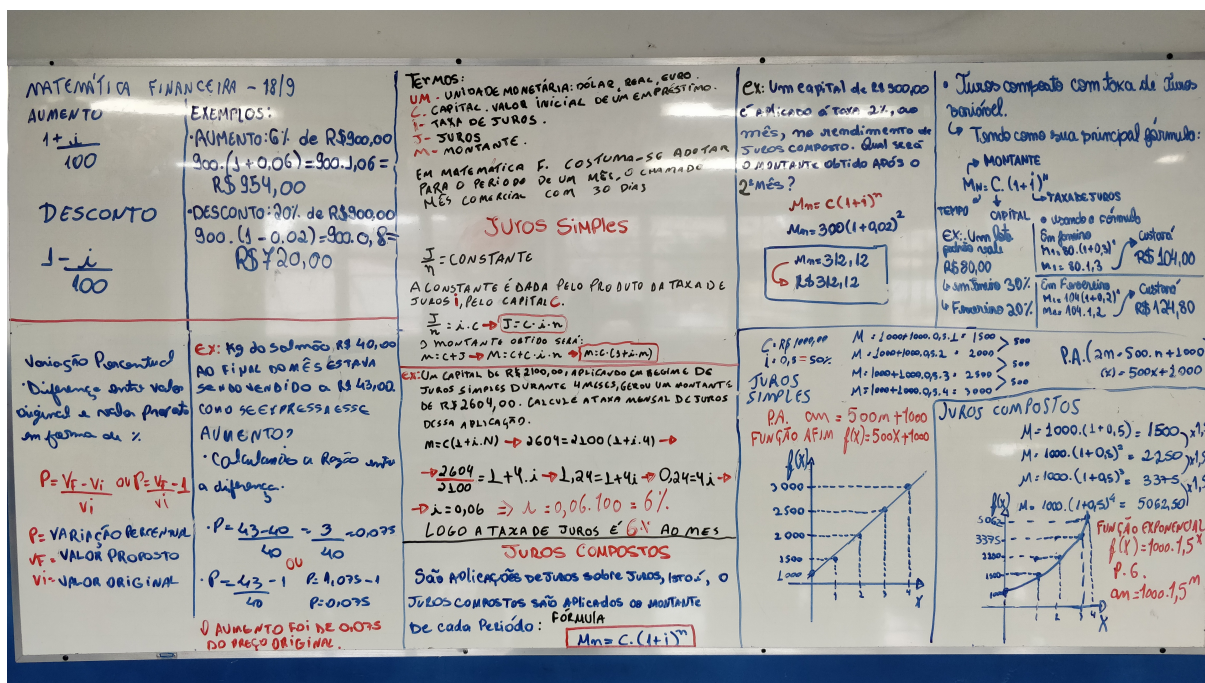 MATEMÁTICA FINANCEIRA - 18/9
AUMENTO
1 + i
100
DESCONTO
1 - i
100
EXEMPLOS:
• AUMENTO: 6% de R$900,00
900.(1+0,06)=900.1,06=
R$954,00
• DESCONTO: 20% de R$900,00
900.(1-0,02)=900.0,8=
R$720,00
Variação Percentual
• Diferença entre valor
original e valor
em forma de %
P= VF - Vi ou P= VF - 1
Vi Vi
P= VARIAÇÃO PERCENTUAL
VF= VALOR PROPOSTO
Vi= VALOR ORIGINAL
Ex: Kg do salmão R$ 40,00
AO FINAL DO MÊS ESTAVA
SENDO VENDIDO A R$ 43,00
COMO SE EXPRESSA ESSE
AUMENTO?
• Calculando a Razão entre
a diferença.
• P= 43-40 = 3 =0,075
40 40
OU
• P= 43 - 1 P= 1,075-1
40 P=0,075
O AUMENTO FOI DE 0,075
DO PREÇO ORIGINAL.
TERMOS:
UM - UNIDADE MONETÁRIA: DÓLAR, REAL, EURO.
C- CAPITAL. VALOR INICIAL DE UM EMPRÉSTIMO.
i- TAXA DE JUROS.
J- JUROS
M- MONTANTE.
EM MATEMÁTICA F. COSTUMA-SE ADOTAR
PARA O PERÍODO DE UM MÊS, O CHAMADO
MÊS COMERCIAL COM 30 DIAS
JUROS SIMPLES
J = CONSTANTE
n
A CONSTANTE É DADA PELO PRODUTO DA TAXA DE
JUROS i, PELO CAPITAL C.
J = i.C → J=C.i.n
n
O MONTANTE OBTIDO SERÁ:
M=C+J → M=C+C.i.n → M=C.(1+i.n)
Ex: UM CAPITAL DE R$2100,00, APLICADO EM REGIME DE
JUROS SIMPLES DURANTE 4 MESES, GEROU UM MONTANTE
DE R$2604,00. CALCULE A TAXA MENSAL DE JUROS
DESSA APLICAÇÃO.
M=C(1+i.N) → 2604=2100(1+i.4) →
→ 2604 =1+4.i → 1,24=1+4i → 0,24=4i →
2100
→ i=0,06 ⇒ i=0,06.100=6%
LOGO A TAXA DE JUROS É 6% AO MES
JUROS COMPOSTOS
São APLICAÇÕES DE JUROS SOBRE JUROS, ISTO É, O
JUROS COMPOSTOS SÃO APLICADOS AO MONTANTE
De cada Período: FÓRMULA
Mn= C.(1+i)ⁿ
Ex: Um capital de R$300,00
é APLICADO á TAXA 2%, ao
mês, no rendimento de
JUROS COMPOSTO. Qual será
O MONTANTE OBTIDO APÓS O
2º MÊS?
Mn= C(1+i)ⁿ
Mn=300(1+0,02)²
Mn=312,12
R$312,12
• Juros composto com taxa de Juros
variável.
↳ Tendo como sua principal fórmula:
MONTANTE
Mn= C.(1+i)ⁿ
TAXA DE JUROS
TEMPO CAPITAL
EX: Um
vale
R$80,00
↳ em Janeiro 30%
↳ Fevereiro 20%
• usando a fórmula
Em Janeiro
M1=80.(1+0,3)¹
M1=80.1,3
Custará
R$104,00
Em Fevereiro
M2=104(1+0,2)¹
M2=104.1,2
Custará
R$124,80
C: R$1000,00
i: 0,5=50%
JUROS
SIMPLES
M=1000+1000.0,5.1=1500
M=1000+1000.0,5.2=2000
M=1000+1000.0,5.3=2500
M=1000+1000.0,5.4=3000
500
500
500
P.A.(an=500.n+1000
(x)=500x+1000
P.A. an=500n+1000
FUNÇÃO AFIM f(x)=500X+1000
f(x)
3000
2500
2000
1500
1000
1 2 3 4 X
JUROS COMPOSTOS
M=1000.(1+0,5)=1500
M=1000.(1+0,5)²=2250
M=1000.(1+0,5)³=3375
M=1000.(1+0,5)⁴=5062,50
f(x)
5062
3375
1500
1000
1 2 3 4 X
FUNÇÃO EXPONENCIAL
f(X)=1000.1,5ˣ
P.G.
an=1000.1,5ⁿ